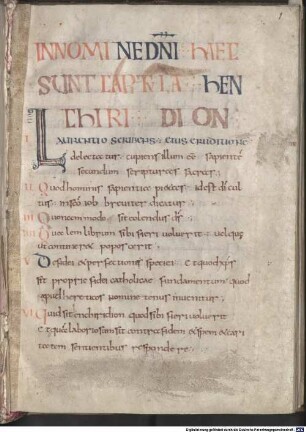 IN NOMINE DNI HAEC
SUNT CAPITULA HEN
CHIRIDION
I LAURENTIO scribens eius eruditione
delectatus cupiens illum eē sapientē
secundum scripturas sacras
II Quod hominis sapientia pietas id est di cul
tus in eo iob breuiter dicatur
III Quomodo sit colendus ds
IIII Qualem librum sibi fieri uoluerit uel quę
ut contineret poposcerit
V De fidei perfectionis specie Et quod xps
sit proprie fidei catholicae fundamentum quod
apud hereticos nomine tenus inuenitur
VI Quid sit enchiridion quod sibi fieri uoluerit
Et quā laboriosum sit contra fidem et spem et cari
tatem sentientibus respondere